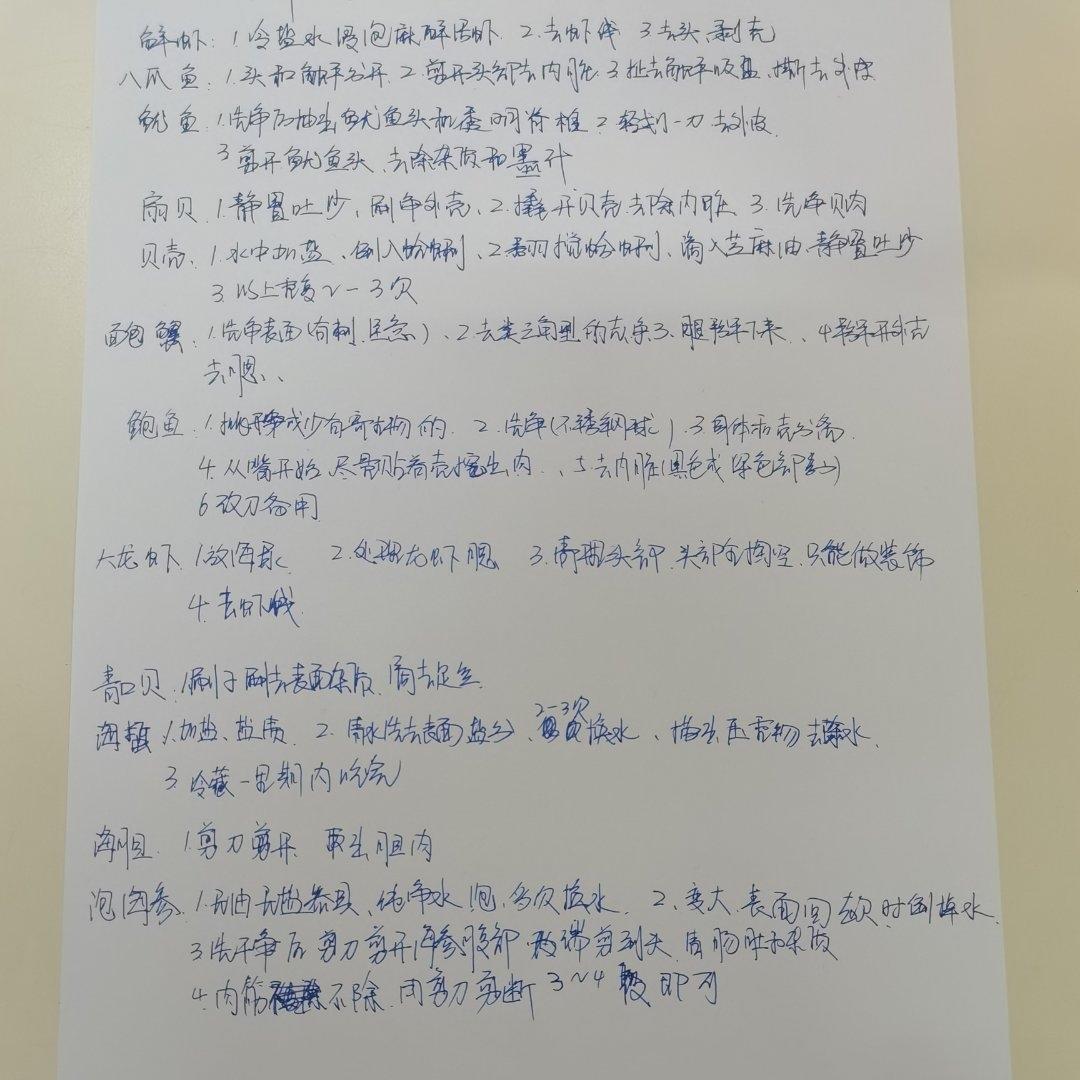 鲜虾：1.冷盐水浸泡麻醉活虾 2.去虾线 3.去头、剥壳
八爪鱼.1.头和触手分开.2.剪开头部去内脏.3.扯去触手吸盘、撕去外皮
鱿鱼.1.洗净后抽出鱿鱼头和透明脊椎2.轻划一刀去外皮.
3.剪开鱿鱼头、去除杂质和墨汁
扇贝.1.静置吐沙、刷净外壳、2.撬开贝壳去除内脏、3.洗净贝肉
贝壳、1.水中加盐、倒入蛤蜊、2.翻搅蛤蜊、滴入芝麻油.静置吐沙
3.以上重复2-3次
面包蟹.1.洗净表面(有刺.注意)、2.去类三角型的壳 3.腿掰下来、4.掰开外壳
去腮、、
鲍鱼.1.挑 或少有寄生物的.2.洗净(不锈钢球).3.身体和壳分离.
4.从嘴开始.尽量贴着壳挖出肉.、5.去内脏(黑色或绿色部分)
6.改刀备用
大龙虾.1.放尿 2.处理龙虾腮 3.清理头部.头部全掏空.只能做装饰
4.去虾线.
青口贝.1.刷子刷去表面杂质.去足丝.
海蜇1.加盐、盐渍.2.清水洗去表面盐分、2-3次换水、捞出压重物去除水.
3.冷藏一星期内吃完
海胆.1.剪刀剪开 取出胆肉
泡海参.1.无油无盐器具、纯净水泡.多次换水.2.变大.表面回软时倒掉水.
3.洗干净后剪刀剪开海参腹部 两端剪到头.肠肚和杂质
4.肉筋不除.用剪刀剪断3~4段即可